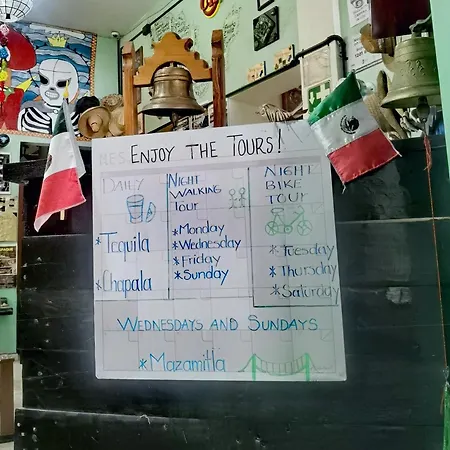 ENJOY THE TOURS!
DAILY
*Tequila
*Chapala
NIGHT
WALKING
TOUR
*Monday
*Wednesday
*Friday
*Sunday
NIGHT
BIKE
TOUR
*Tuesday
*Thursday
*Saturday
WEDNESDAYS AND SUNDAYS
*Mazamitla